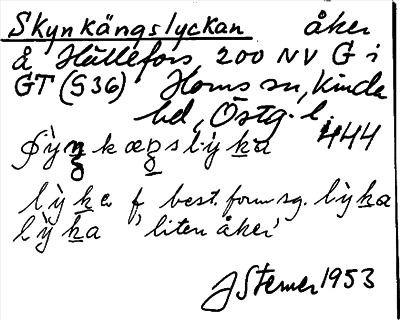 Skynkängslyckan åker
å Hällefors 200 NV G i
GT (S36) Horns sn, Kinda
hd, Östg. l.
444
lỳka f best. form sg. lỳka
lỳka 'liten åker'
J Sterner 1953